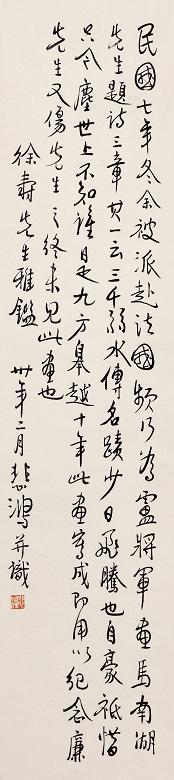 民國七年冬余被派赴法國頻行為盧將軍畫馬南湖
先生題詩三章其一云三千弱水傳名蹟少日飛騰也自豪祗惜
只今塵世上不知誰是九方皋越十年此畫寫成即用以紀念廉
先生又傷先生之終未見此畫也
徐壽先生雅鑑
卅年二月悲鴻并識